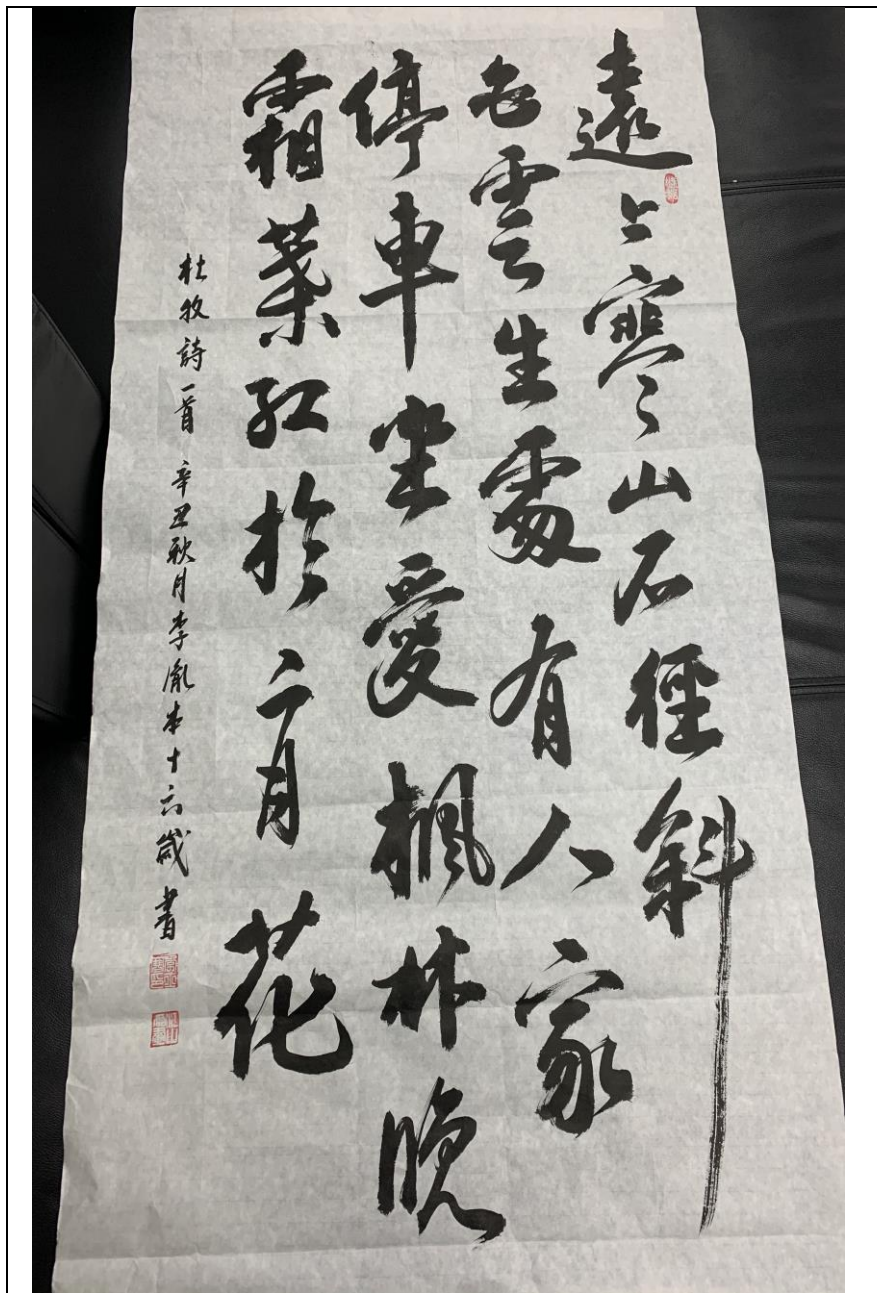 遠上寒山石徑斜
白雲生處有人家
停車坐愛楓林晚
霜葉紅於二月花
杜牧詩一首 辛丑秋月李胤本十六歲書